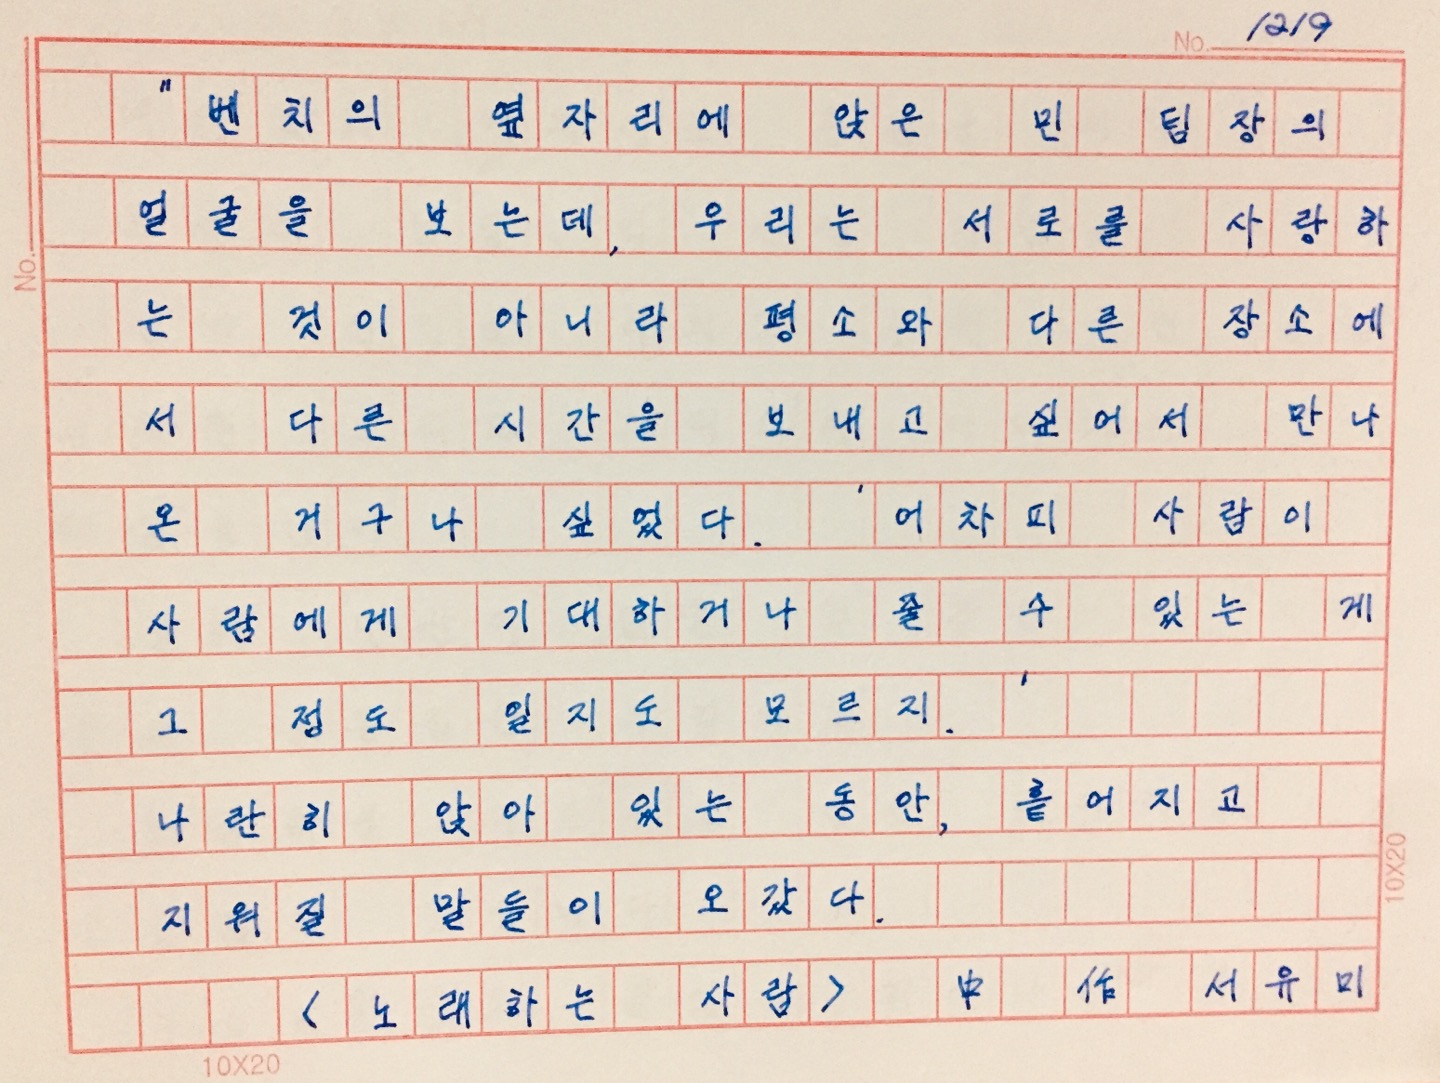 No. 1219
"벤치의 옆자리에 앉은 민 팀장의
얼굴을 보는데, 우리는 서로를 사랑하
는 것이 아니라 평소와 다른 장소에
서 다른 시간을 보내고 싶어서 만나
온 거구나 싶었다. '어차피 사람이
사람에게 기대하거나 줄 수 있는 게
그 정도 일지도 모르지.'
나란히 앉아 있는 동안, 흩어지고
지워질 말들이 오갔다.
<노래하는 사람> 中 作 서유미
No.
10X20
10X20